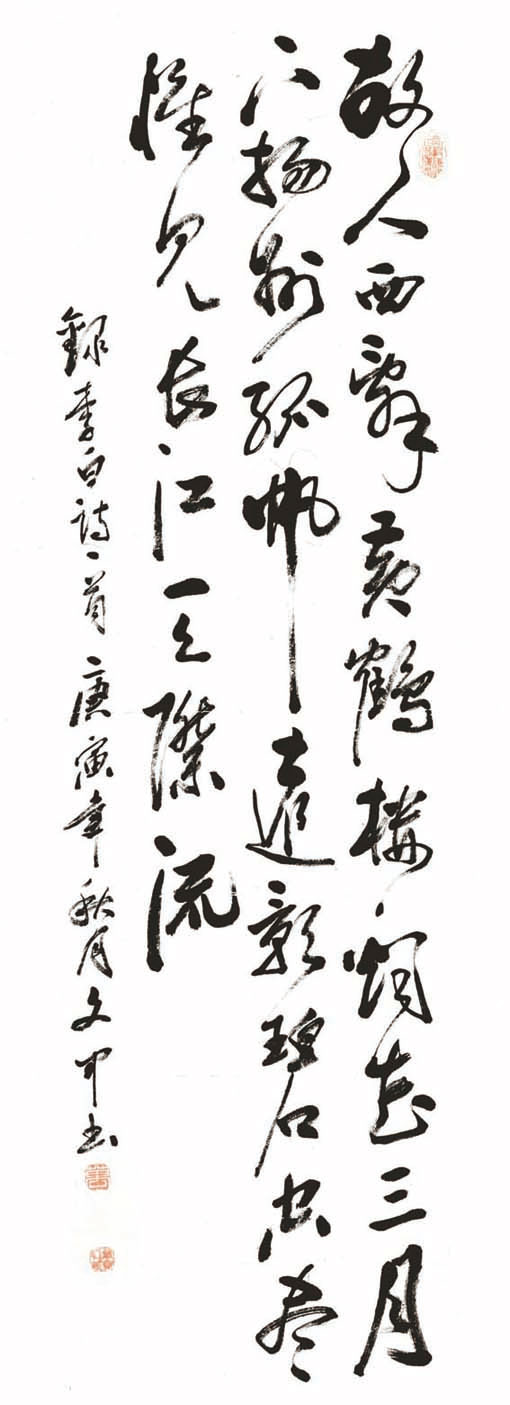 故人西辭黄鶴樓烟花三月
下揚州孤帆遠影碧空尽
惟見长江天際流
錄李白詩一首 庚寅年秋月文书